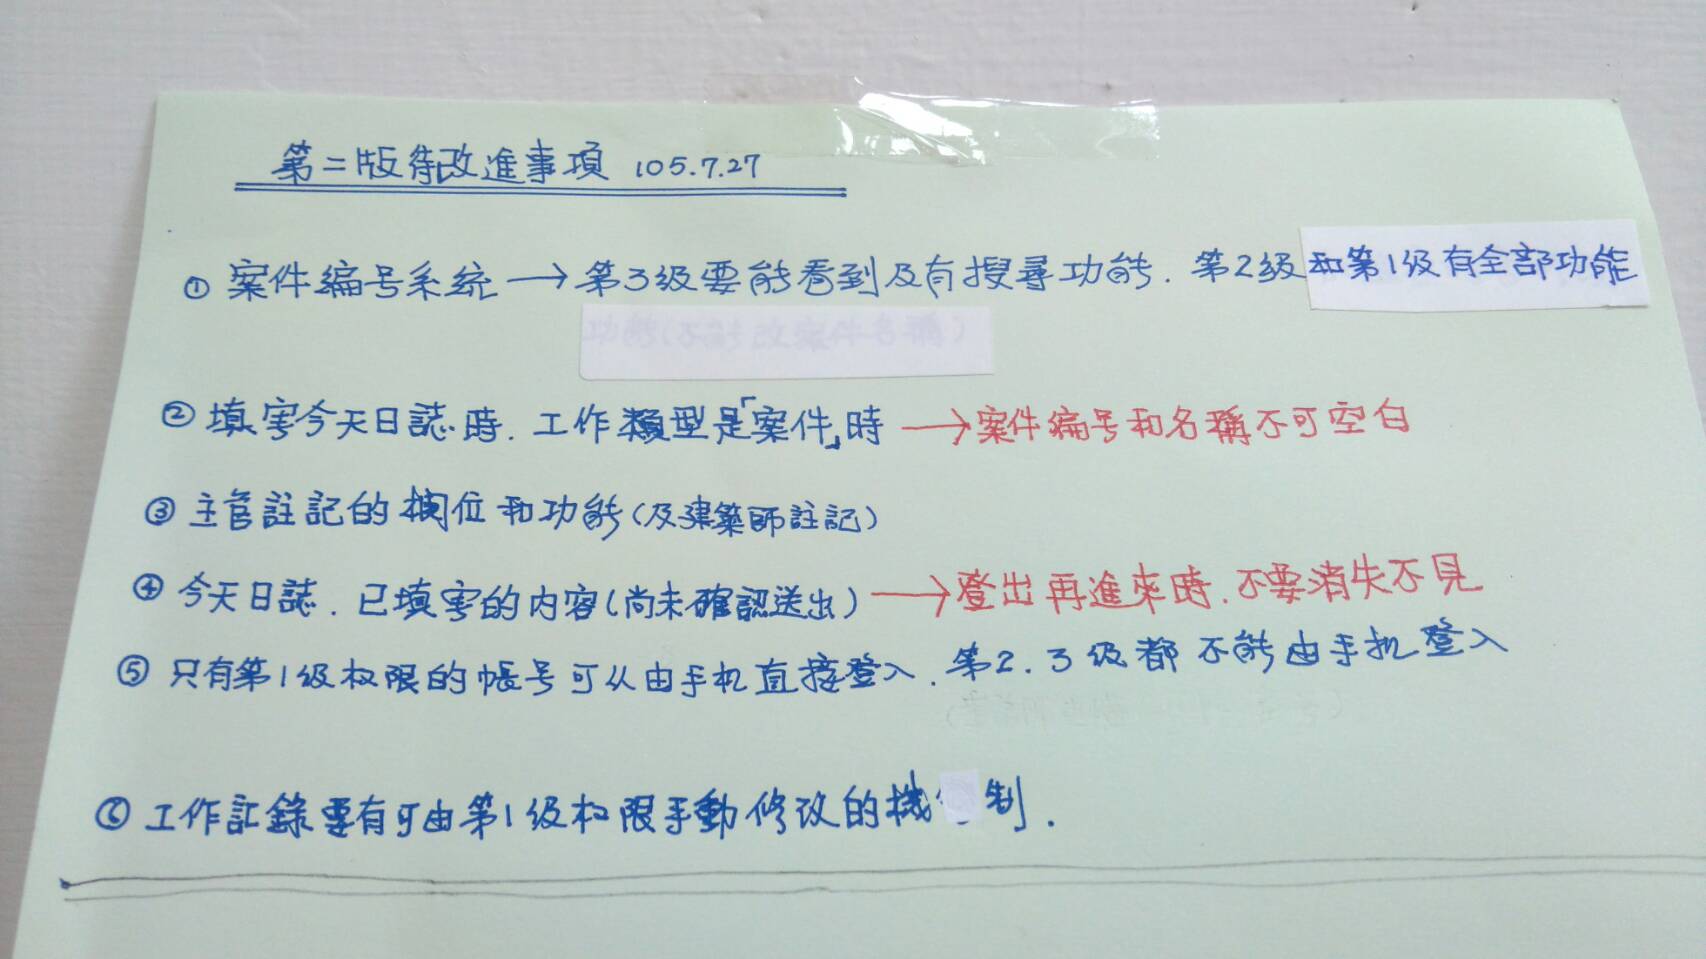 第二版待改進事項 105.7.27
① 案件編号系統 → 第3級要能看到及有搜尋功能. 第2級和第1級有全部功能
功能(不能改案件名稱)
② 填寫今天日誌時. 工作類型是「案件」時 → 案件編号和名稱不可空白
③ 主管註記的欄位和功能(及建築師註記)
④ 今天日誌. 已填寫的內容(尚未確認送出) → 登出再進來時. 不要消失不見
⑤ 只有第1級权限的帳号可从由手机直接登入. 第2.3級都不能由手机登入
⑥ 工作記錄要有可由第1級权限手動修改的機制.